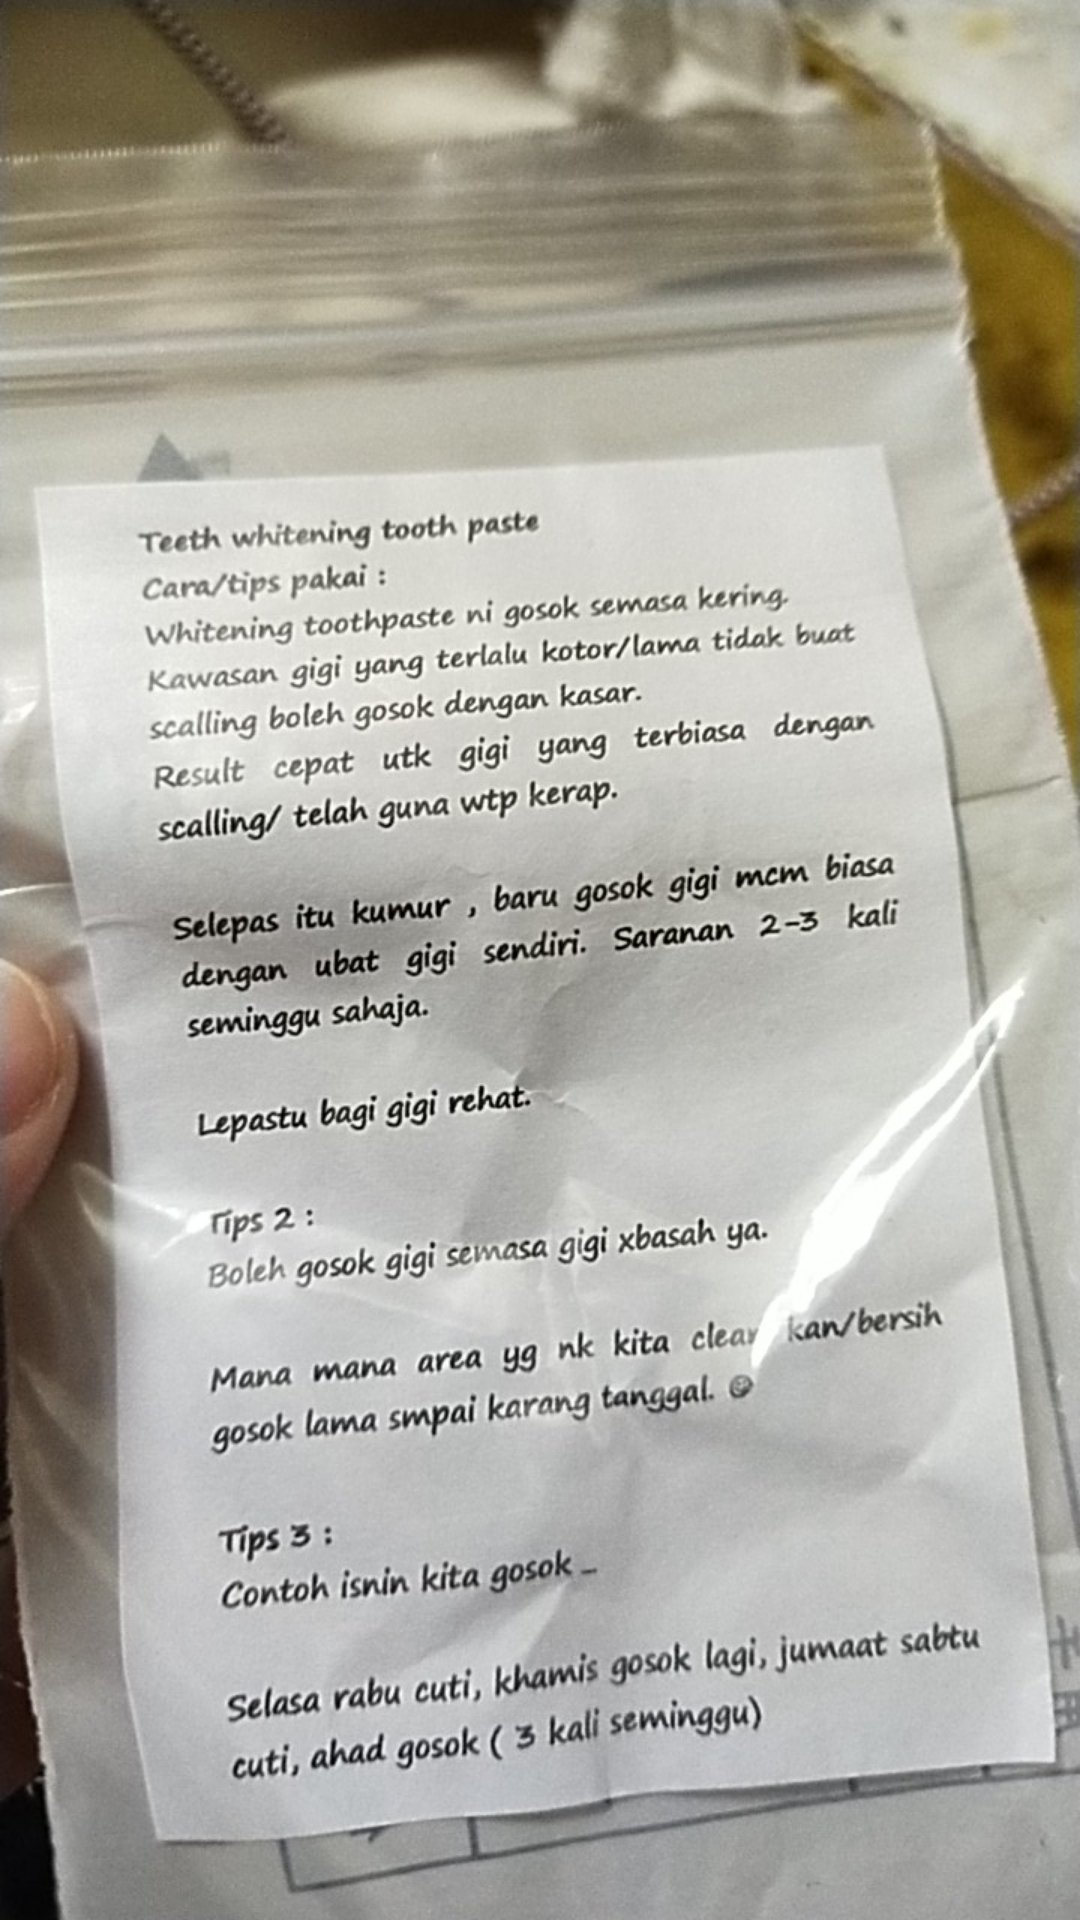 Teeth whitening tooth paste
Cara/tips pakai :
Whitening toothpaste ni gosok semasa kering.
Kawasan gigi yang terlalu kotor/lama tidak buat
scalling boleh gosok dengan kasar.
Result cepat utk gigi yang terbiasa dengan
scalling/ telah guna wtp kerap.
Selepas itu kumur , baru gosok gigi mcm biasa
dengan ubat gigi sendiri. Saranan 2-3 kali
seminggu sahaja.
Lepastu bagi gigi rehat.
Tips 2 :
Boleh gosok gigi semasa gigi xbasah ya.
Mana mana area yg nk kita clear kan/bersih
gosok lama smpai karang tanggal. ☺
Tips 3 :
Contoh isnin kita gosok _
Selasa rabu cuti, khamis gosok lagi, jumaat sabtu
cuti, ahad gosok ( 3 kali seminggu)